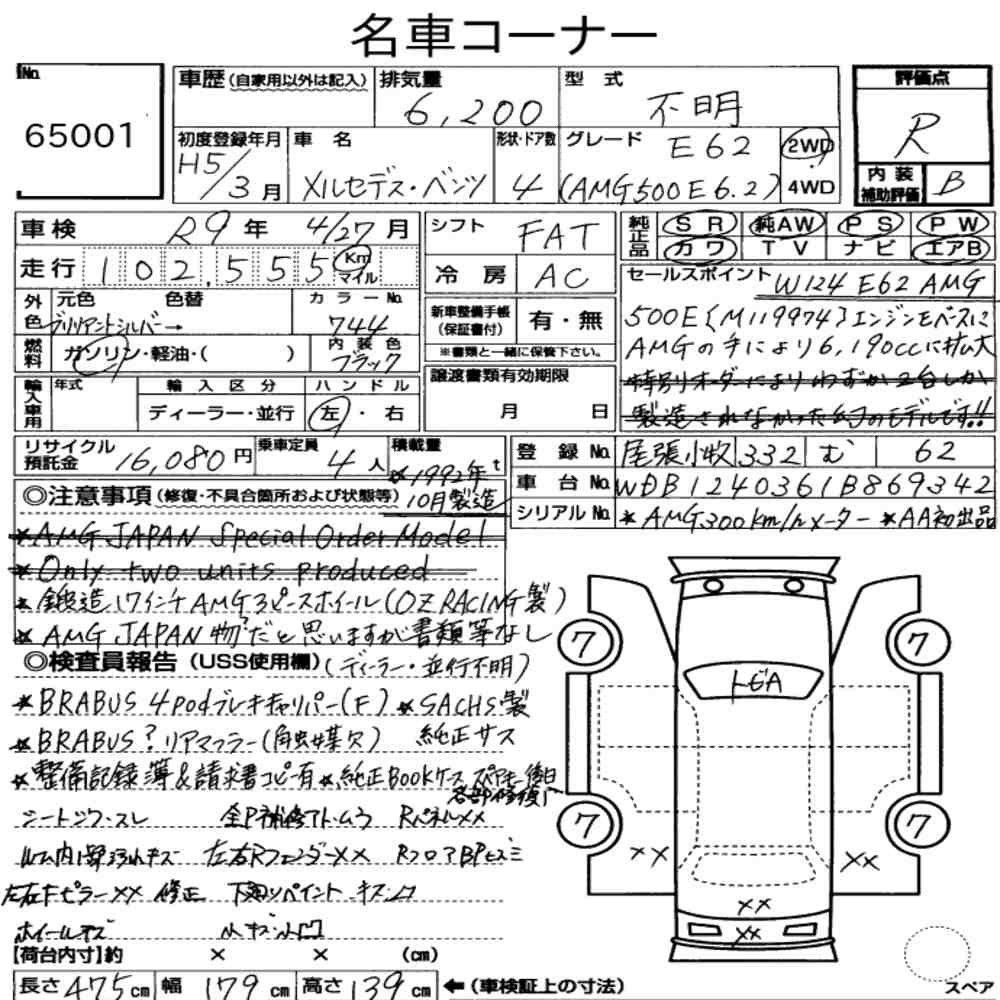 名車コーナー
No.
65001
車歴(自家用以外は記入)
排気量 6,200
型式 不明
初度登録年月 H5/3月
車名 メルセデス・ベンツ
形状・ドア数 4
グレード E62 (AMG500E6.2)
2WD
4WD
評価点
R
内装補助評価 B
車検 R9年 4/27月
走行 102,555 Km マイル
シフト FAT
冷房 AC
純正品 SR 純AW PS PW
カワ TV ナビ エアB
外色 元色 色替 カラーNo.
ブリリアントシルバー→ 744
燃料 ガソリン・軽油・( )
内装色 ブラック
新車整備手帳(保証書付) 有・無
※書類と一緒に保管下さい。
輸入車用 年式 輸入区分 ハンドル
ディーラー・並行 左・右
譲渡書類有効期限
月 日
セールスポイント W124 E62 AMG
500E{M119974}エンジンをベースに
AMGの手により6,190ccに拡大
特別リオーダーによりわずか2台しか
製造されなかった幻のモデルです!!
リサイクル預託金 16,080円
乗車定員 4人
積載量 t
*1992年10月製造
登録No. 尾張小牧 332 む 62
車台No. WDB1240361B869342
シリアルNo. *AMG300km/hメーター *AA初出品
◎注意事項(修復・不具合箇所および状態等)
*AMG JAPAN Special Order Model
*Only two units produced
*鍛造17インチAMG3ピースホイール(OZ RACING製)
*AMG JAPAN物?だと思いますが書類等なし
◎検査員報告(USS使用欄)(ディーラー・並行不明)
*BRABUS 4podブレーキキャリパー(F) *SACHS製
*BRABUS?リアマフラー(触媒欠) 純正サス
*整備記録簿&請求書コピー有 *純正BOOKケース スペアキー後日
各部修復
シートシワ・スレ 全P補修アト・ムラ RパネルXX
ルーム内 汚れキズ 左右RフェンダーXX RフロアBPヒズミ
左右FピラーXX 修正 下廻りペイント・キズ・凹
ホイールキズ 小キズ・小凹
トビA
7
7
7
7
XX
XX
XX
XX
【荷台内寸】約 × × (cm)
長さ475cm 幅179cm 高さ139cm ←(車検証上の寸法)
スペア